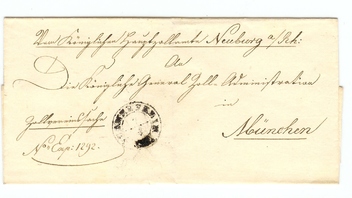 Vom Königlichen Hauptzollamte Neuburg a/Rh:
An
Die Königliche General Zoll-Administration
in
München
Zollvereinssache
No. Exp: 1292.